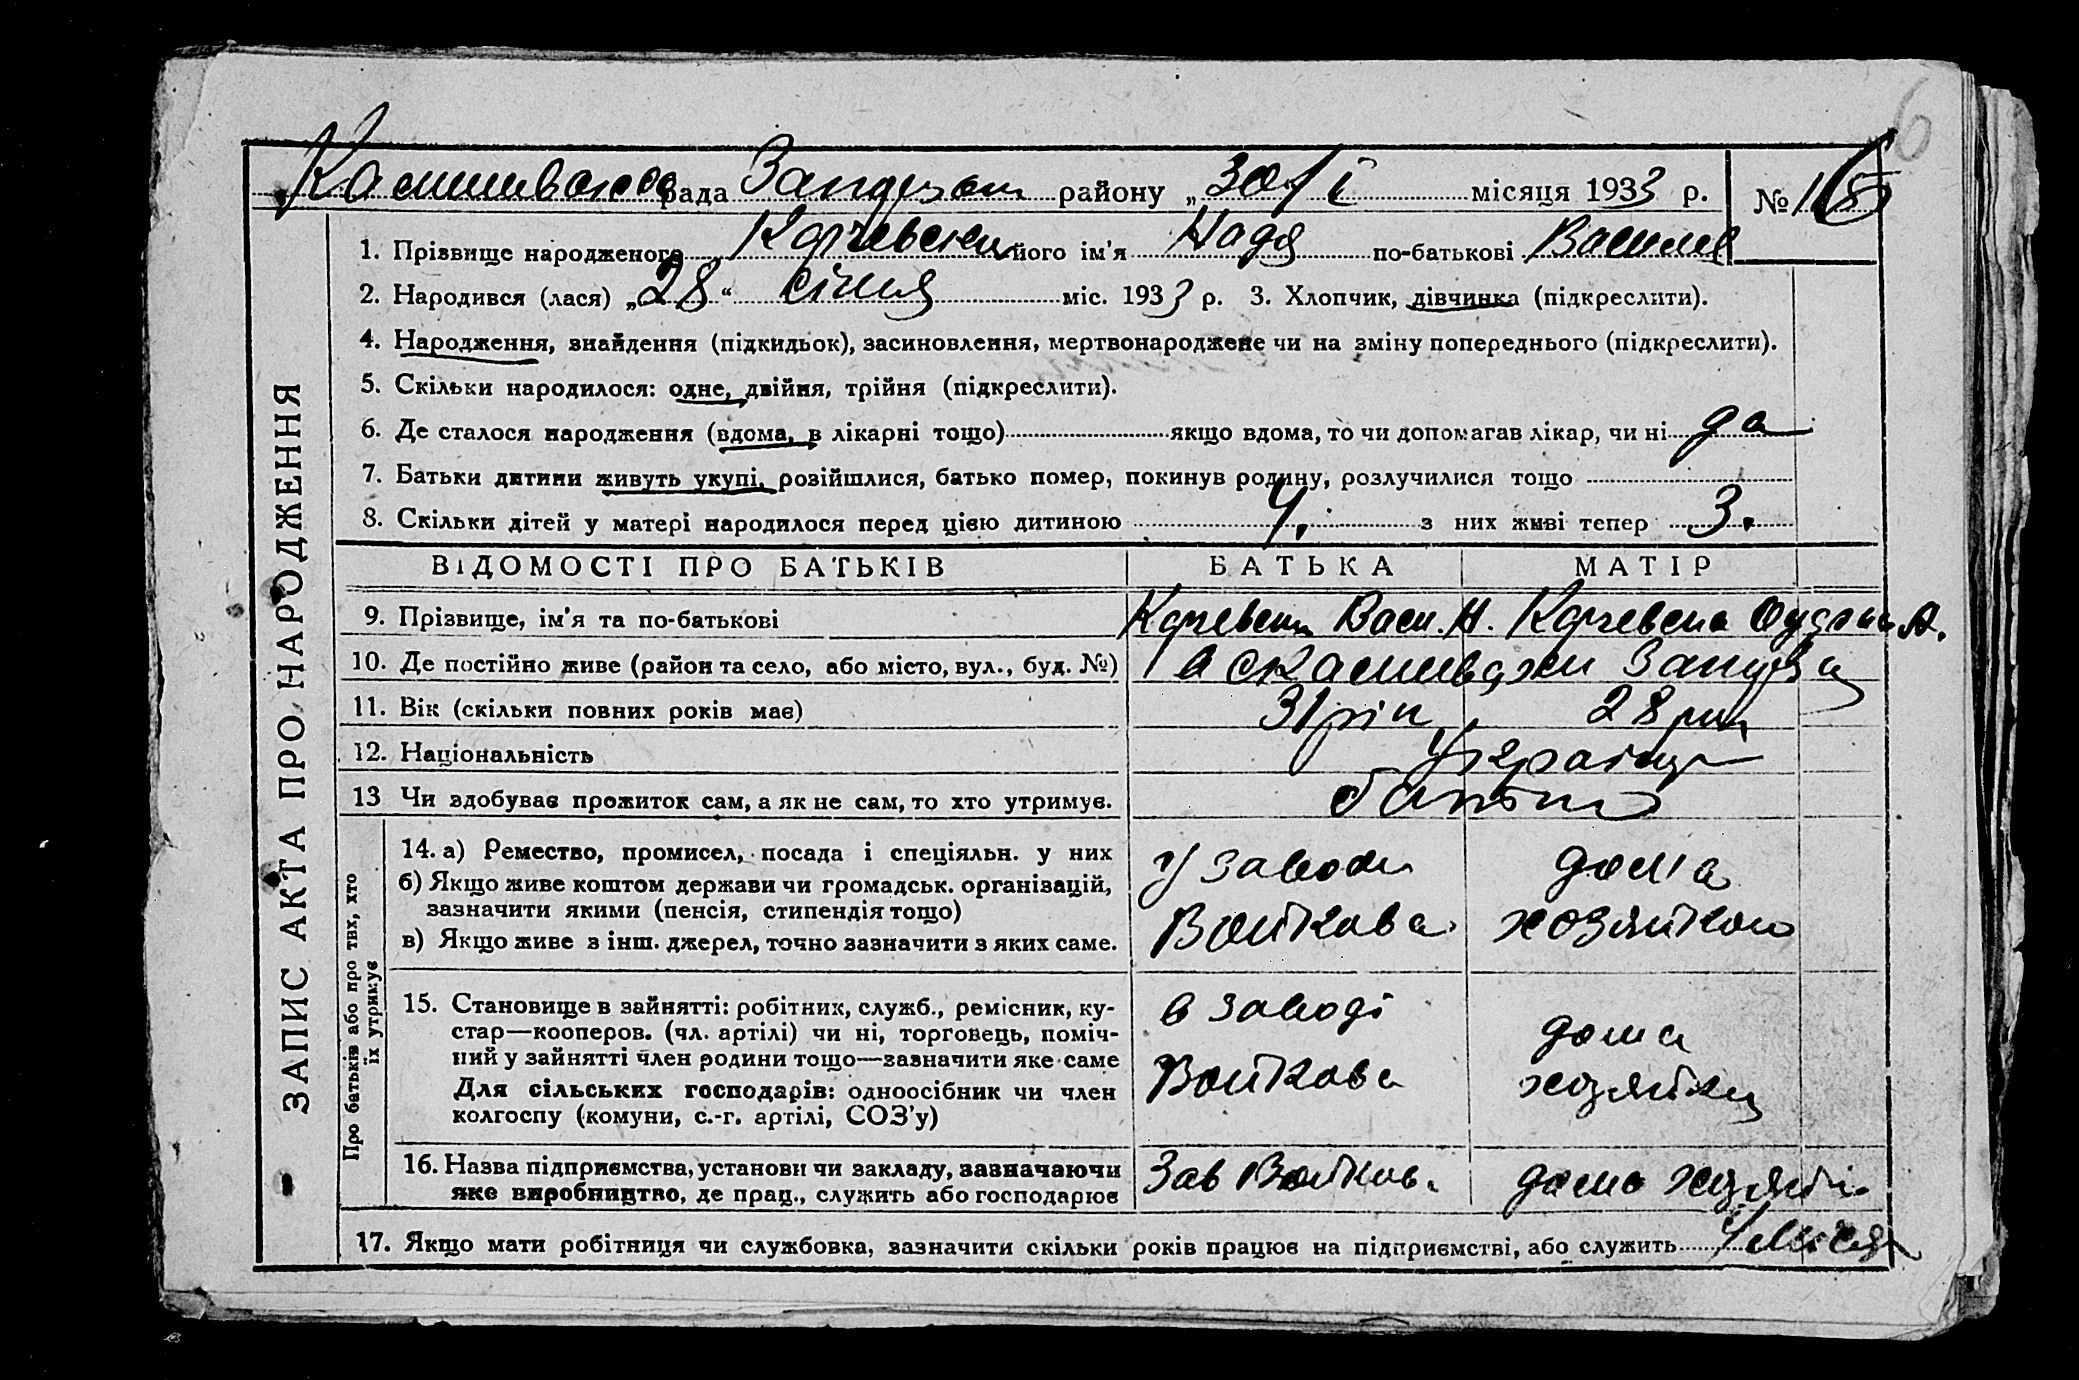 6
рада району „30/I місяця 1933 р. №
1. Прізвище народженого його ім'я Надя по-батькові
2. Народився (лася) „28“ січня міс. 1933 р. 3. Хлопчик, дівчинка (підкреслити).
4. Народження, знайдення (підкидьок), засиновлення, мертвонароджене чи на зміну попереднього (підкреслити).
5. Скільки народилося: одне, двійня, трійня (підкреслити).
6. Де сталося народження (вдома, в лікарні тощо) якщо вдома, то чи допомагав лікар, чи ні да
7. Батьки дитини живуть укупі, розійшлися, батько помер, покинув родину, розлучилися тощо
8. Скільки дітей у матері народилося перед цією дитиною 4. з них живі тепер 3.
ВІДОМОСТІ ПРО БАТЬКІВ БАТЬКА МАТІР
9. Прізвище, ім'я та по-батькові
10. Де постійно живе (район та село, або місто, вул., буд. №)
11. Вік (скільки повних років має) 31 рік 28 рік
12. Національність
13 Чи здобуває прожиток сам, а як не сам, то хто утримує. батько
Про батьків або про тих, хто
їх утримує
14. а) Ремество, промисел, посада і спеціяльн. у них
б) Якщо живе коштом держави чи громадськ. організацій,
зазначити якими (пенсія, стипендія тощо)
в) Якщо живе з інш. джерел, точно зазначити з яких саме.
У заводи
Войкова
дома
хозяйкою
15. Становище в зайнятті: робітник, служб., ремісник, ку-
стар—кооперов. (чл. артілі) чи ні, торговець, поміч-
ний у зайнятті член родини тощо—зазначити яке саме
Для сільських господарів: одноосібник чи член
колгоспу (комуни, с.-г. артілі, СОЗ'у)
в заводі
Войкова
дома
16. Назва підприємства, установи чи закладу, зазначаючи
яке виробництво, де прац., служить або господарює
Зав
17. Якщо мати робітниця чи службовка, зазначити скільки років працює на підприємстві, або служить
ЗАПИС АКТА ПРО НАРОДЖЕННЯ